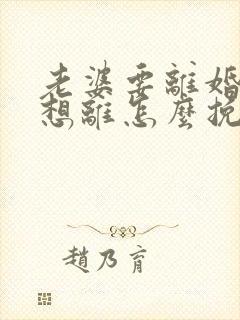 老婆要離婚
想離怎麼挽
趙乃育